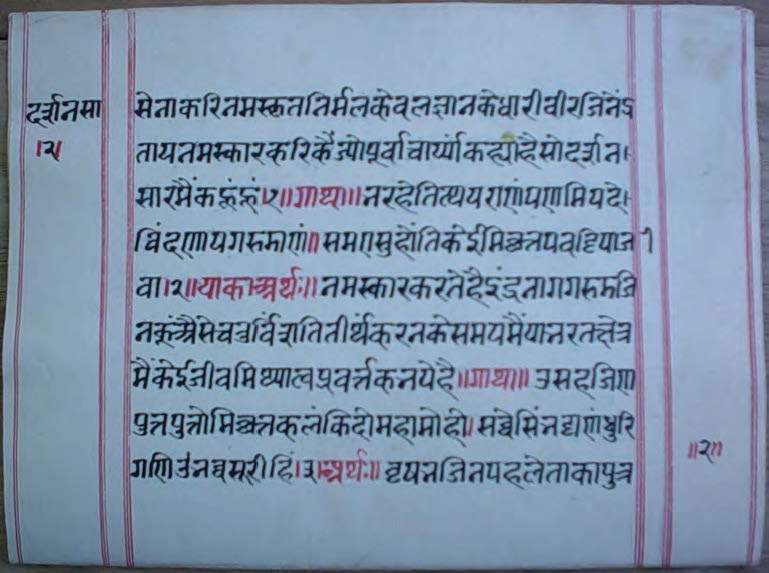 दर्शनसा
।२।
सेनाकरिनमस्कृतनिर्मलकेवलज्ञानकेधारीवीरजिनेंऽ
तायनमस्कारकरिकैज्योपूर्वाचार्य्यांकह्योहैसोदर्शन।
सारमैंकहूंहूं।१॥गाथा॥नरहेतित्थयराणंपणमियदे।
विंदणायगरुडाणं॥समएसुहोंतिकेईमिच्छत्तपवट्टियाज
वा।२॥याकाअर्थः॥नमस्कारकरतेहैइंद्रनागगरुडजि
नकूंअैसेचउविंशतितीर्थंकरनकेसमयमैंयानरतक्षेत्र
मैंकेईजीवमिथ्यात्वप्रवर्त्तकनयेहै॥गाथा॥उसहजिण
पुत्तपुत्तोमिच्छत्तकलंकिदोमहामोहो।सव्वेसिंनट्टाणंधुरि
गणिउनव्वसूरीहिं।३।अर्थः॥वृषनजिनपहलेताकापुत्र
॥२॥